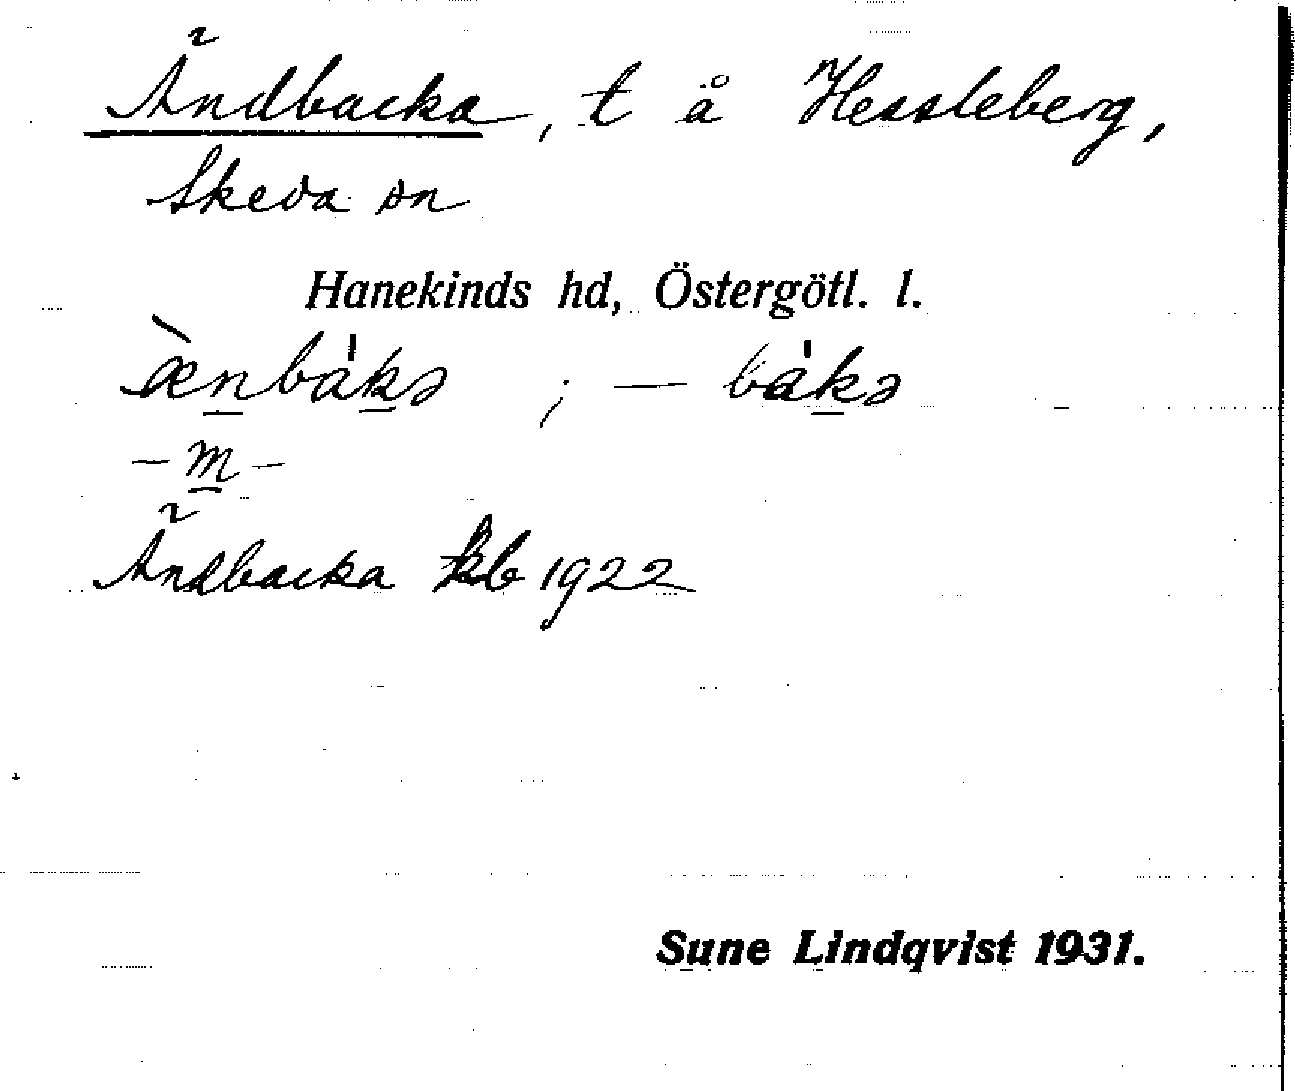 Ändbacka, t å Hessleberg,
Skeda sn
Hanekinds hd, Östergötl. l.
æ̀nbák̠ə ; — bák̠ə
– m̠ –
Ändbacka kb 1922
Sune Lindqvist 1931.